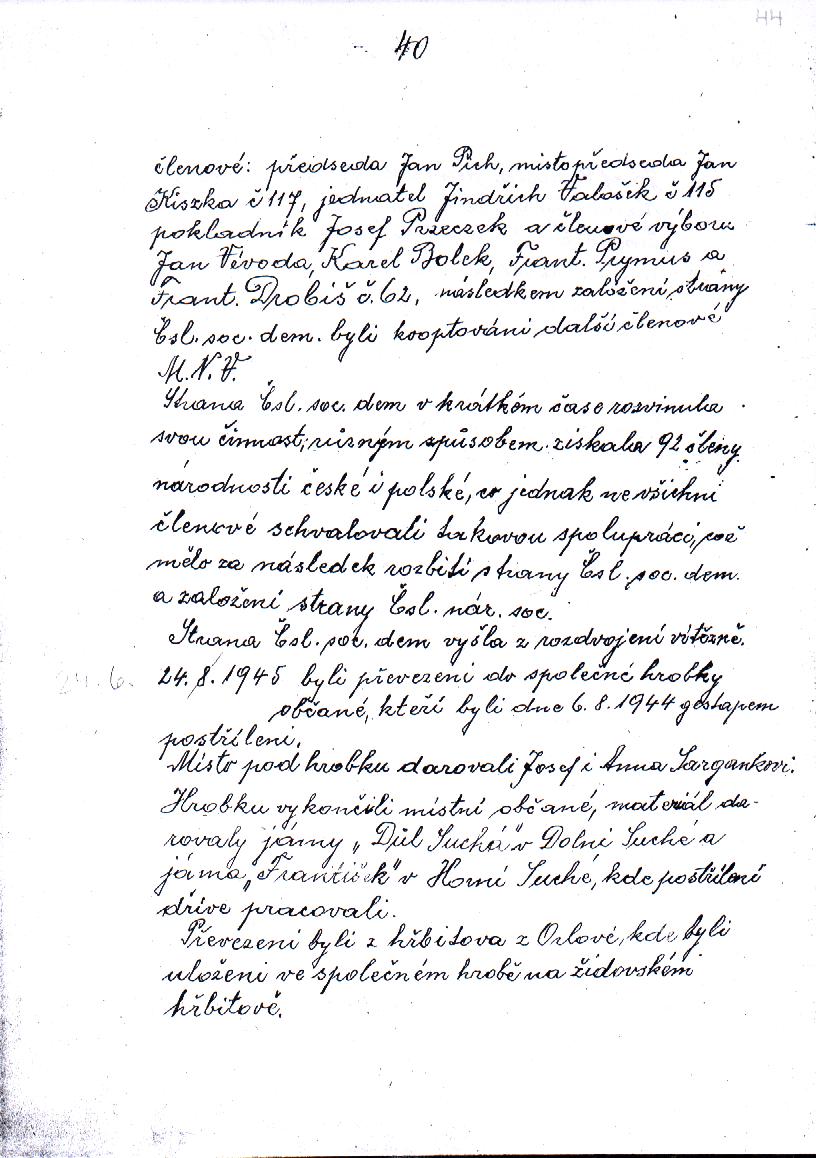 44
40
členové: předseda Jan Pich, místopředseda Jan
Kiszka č 117, jednatel Jindřich Valošek č 115
pokladník Josef Przeczek a členové výboru
Jan Vévoda, Karel Bolek, Frant. Prymus a
Frant. Drobiš č. 62, následkem založení strany
Čsl. soc. dem. byli kooptováni další členové
M. N. V.
Strana Čsl. soc. dem v krátkém čase rozvinula
svou činnost, různým způsobem získala 92 členy
národnosti české i polské, co jednak ne všichni
členové schvalovali takovou spolupráci, což
mělo za následek rozbití strany Čsl. soc. dem.
a založení strany Čsl. nár. soc.
Strana Čsl. soc. dem vyšla z rozdvojení vítězně.
24. 6. 24. 8. 1945 byli převezeni do společné hrobky
občané, kteří byli dne 6. 8. 1944 gestapem
postříleni.
Místo pod hrobku darovali Josef i Anna Sargankovi.
Hrobku vykončili místní občané, materiál da-
rovaly jámy „Důl Suchá" v Dolní Suché a
jáma „František" v Horní Suché, kde postřílení
dříve pracovali.
Převezeni byli z hřbitova z Orlové, kde byli
uloženi ve společném hrobě na židovském
hřbitově.